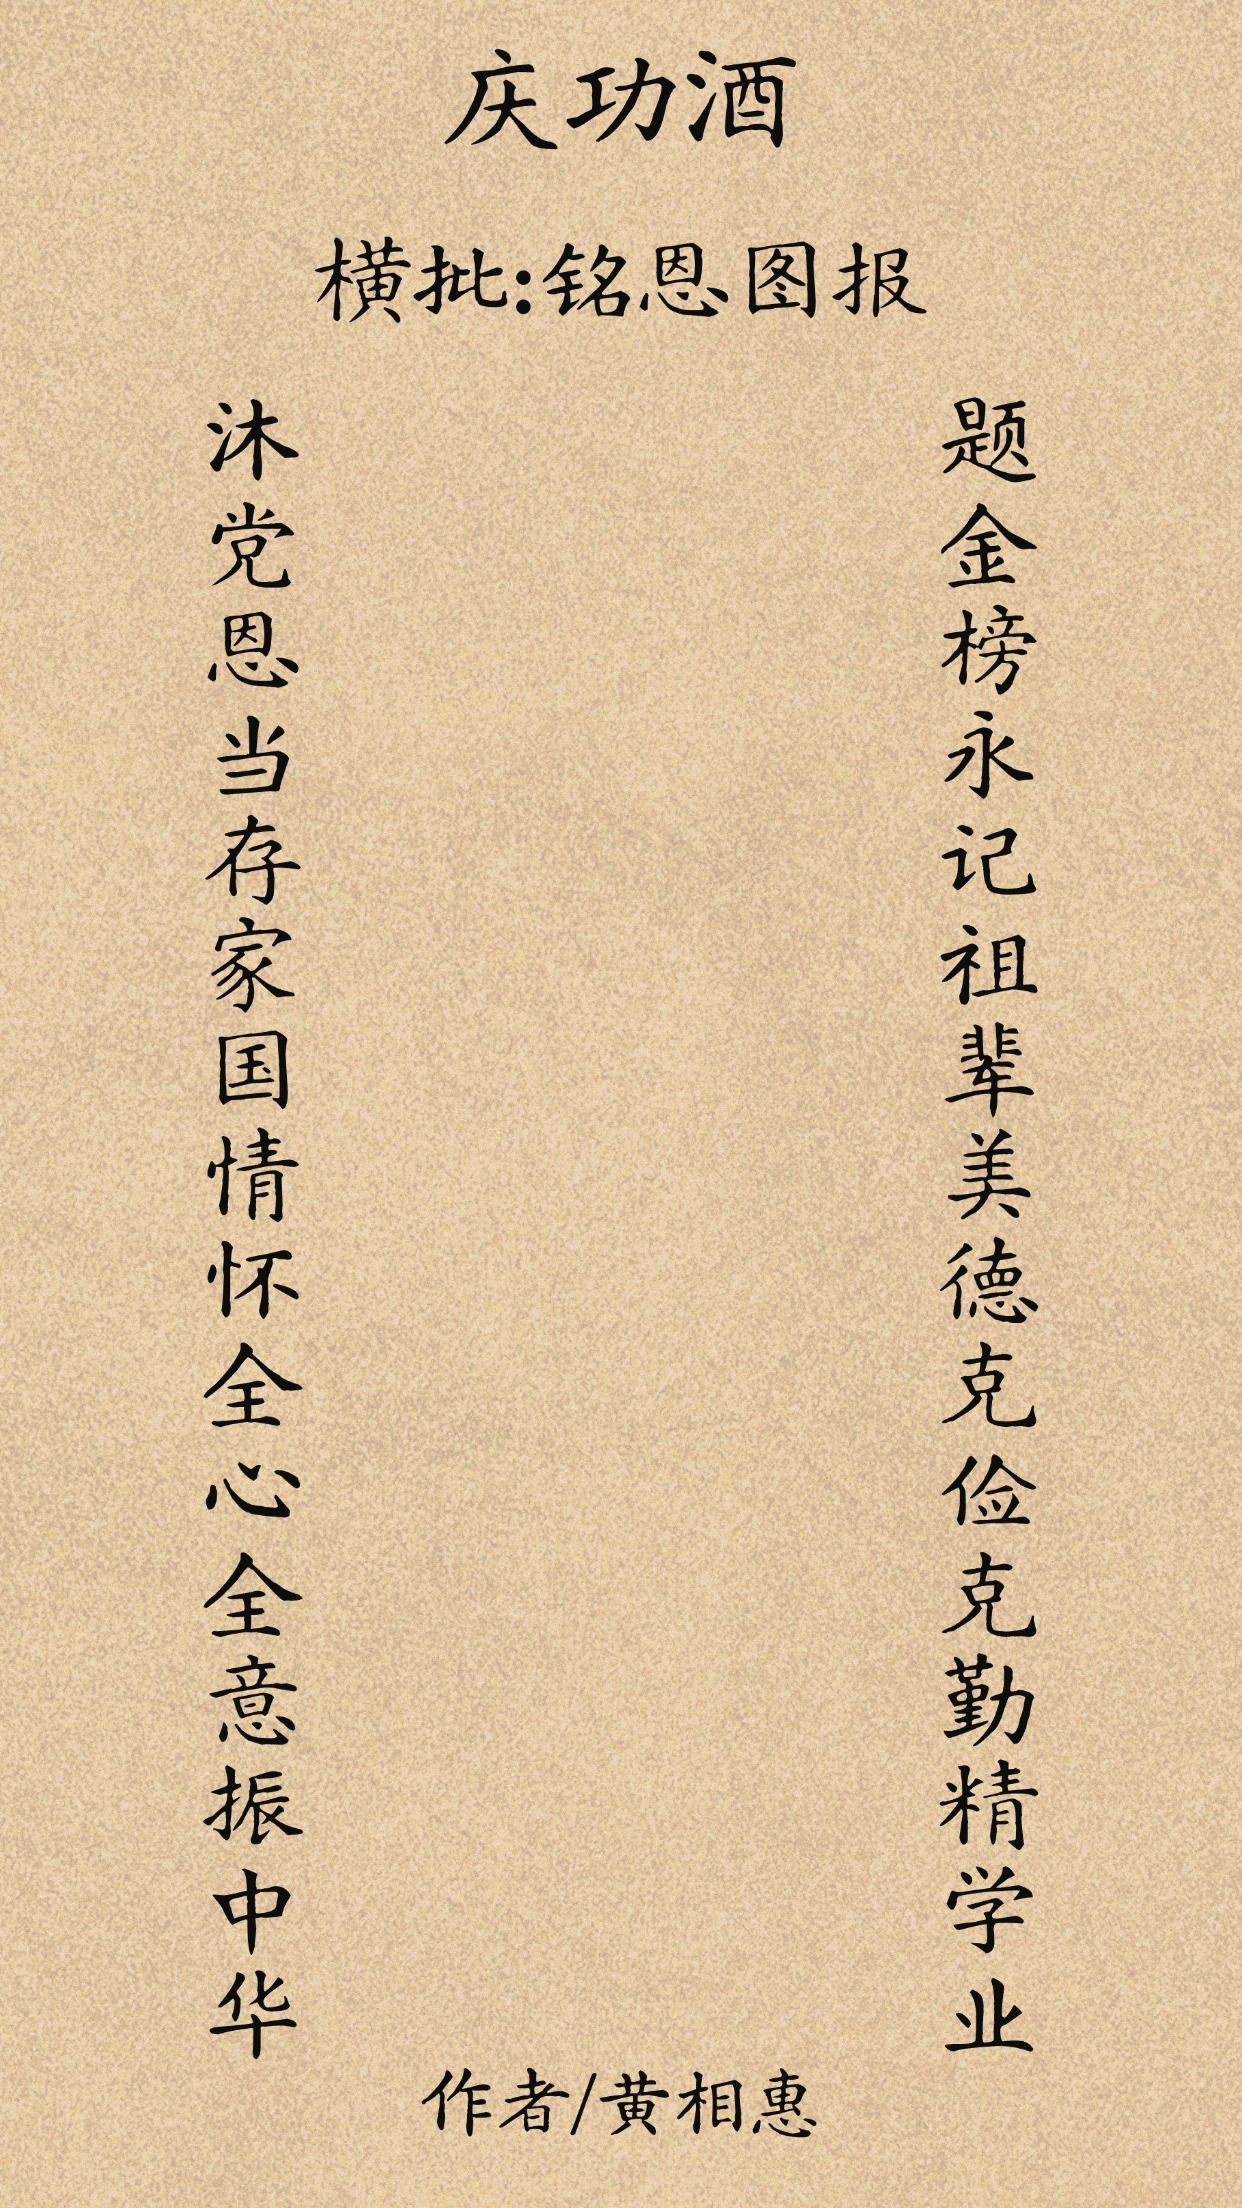 庆功酒
横批:铭恩图报
题金榜永记祖辈美德克俭克勤精学业
沐党恩当存家国情怀全心全意振中华
作者/黄相惠